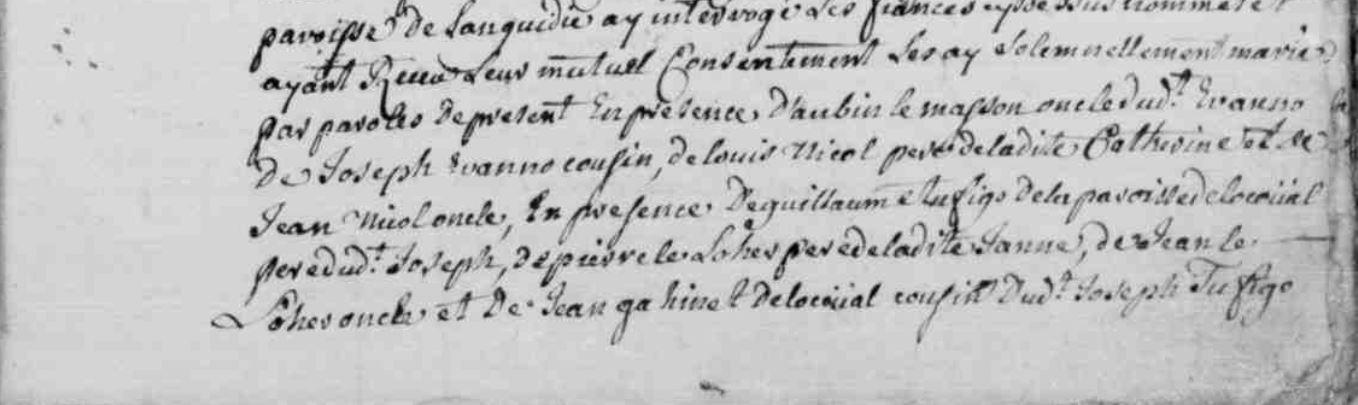 paroisse de Languidic ay interrogé les fiancés cy dessus nommés et
ayant Receu Leur mutuel Consentement Les ay solemnellement mariés
par paroles de present En presence d'aubin le masson oncle dud.t Evanno
De Joseph Evanno cousin, de louis Nicol pere de ladite Catherine et de
Jean Nicol oncle, En presence De guillaume tufigo de la paroisse de locoual
pere dud.t Joseph, de pierre le Loher pere de ladite Janne, de Jean le
Loher oncle et De Jean gahinet de locoual cousin Dud.t Joseph Tufigo